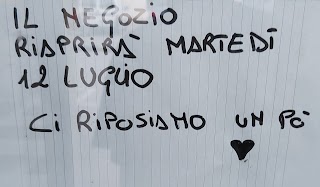 IL NEGOZIO
RIAPRIRÀ MARTEDÌ
12 LUGLIO
Ci RIPOSIAMO UN PÒ
♥